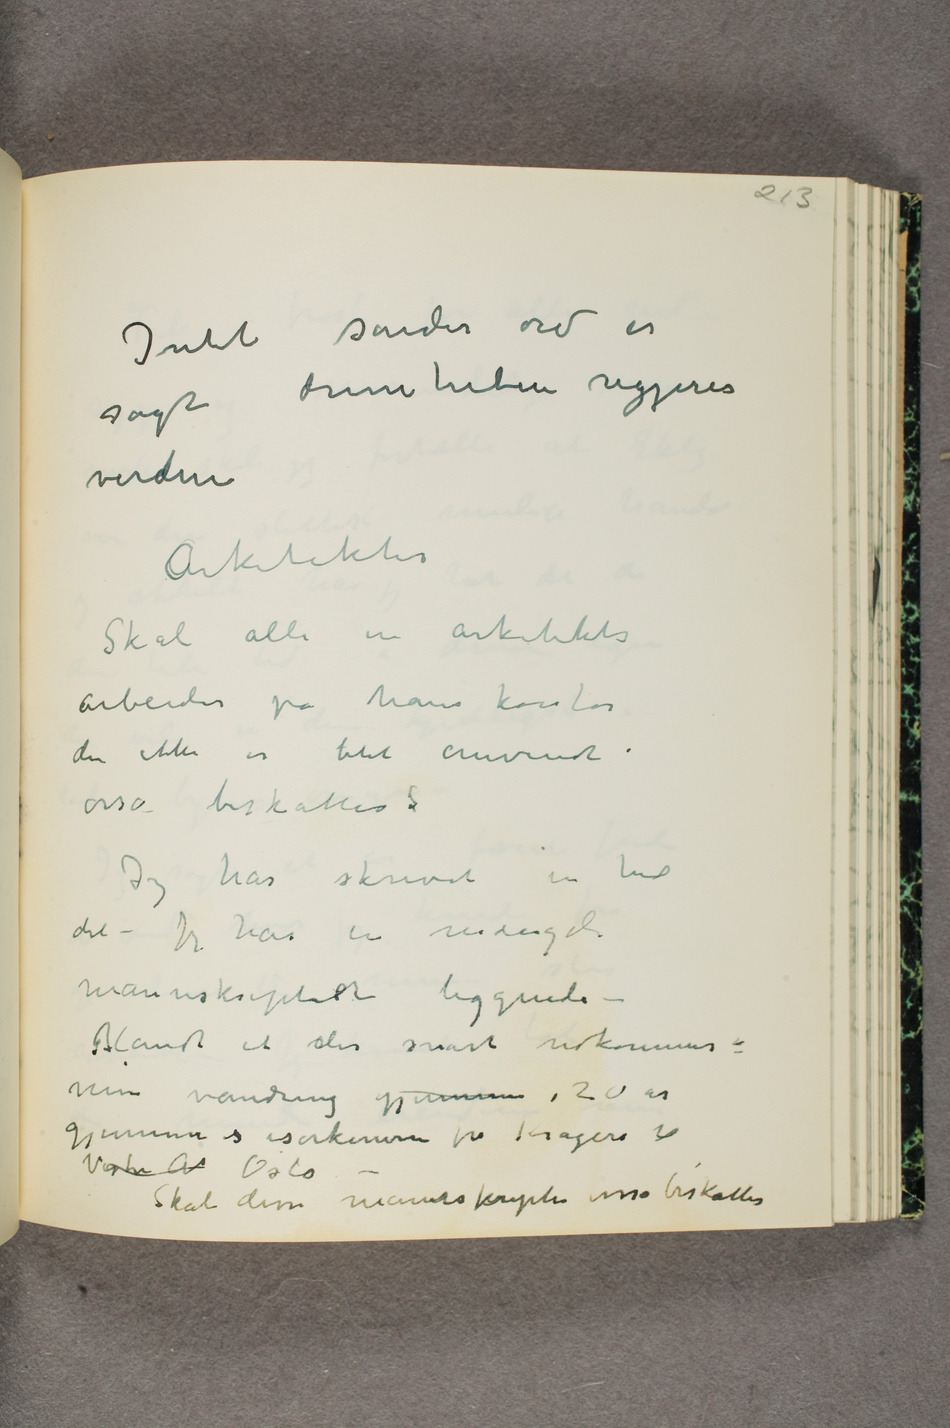 213
Intet sander ord er
sagt dumheten regjeres
verden
Arkitekter
Skal alle en arkitekts
arbeider på hans kontor
der ikke er blet anvendt
osså beskattes?
Jeg har skrevet en hel
del – Jeg har en mængde
mannskripter liggende –
Blandt et der snart udkommer =
min vandring gjennem i 20 år
gjennem isørkenen fra Kragerø til
Vestre A Oslo –
Skal disse manuskripter osså beskattes